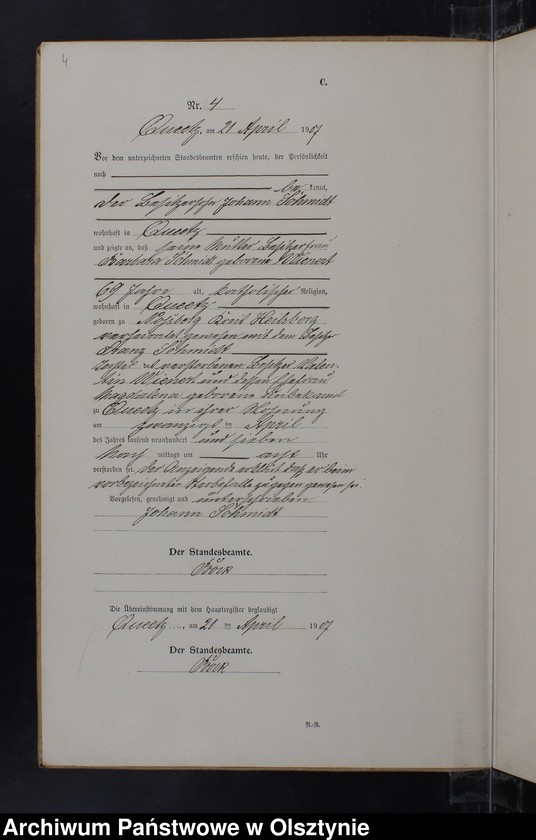 4
C.
Nr. 4
Queetz, am 21 April 1907
Vor dem unterzeichneten Standesbeamten erschien heute, der Persönlichkeit
nach
be kannt,
der Besitzersohn Johann Schmidt
wohnhaft in Queetz
und zeigte an, daß seine Mutter Besitzerfrau
Barbara Schmidt geborene Wienert
69 Jahre alt, katholischer Religion,
wohnhaft in Queetz
geboren zu Noßberg Kreis Heilsberg
verheiratet gewesen mit dem Besitzer
Franz Schmidt
Tochter des verstorbenen Besitzer Valen-
tin Wienert und dessen Ehefrau
Magdalena geborene Unbekannt
zu Queetz in ihrer Wohnung
am zwanzigsten April
des Jahres tausend neunhundert und sieben
Nach mittags um acht Uhr
verstorben sei. Der Anzeigende erklärt daß er beim
vorbezeichneten Sterbefalle zugegen gewesen sei
Vorgelesen, genehmigt und unterschrieben
Johann Schmidt
Der Standesbeamte.
Die Übereinstimmung mit dem Hauptregister beglaubigt
Queetz, am 21 ten April 1907
Der Standesbeamte.
Archiwum Państwowe w Olsztynie